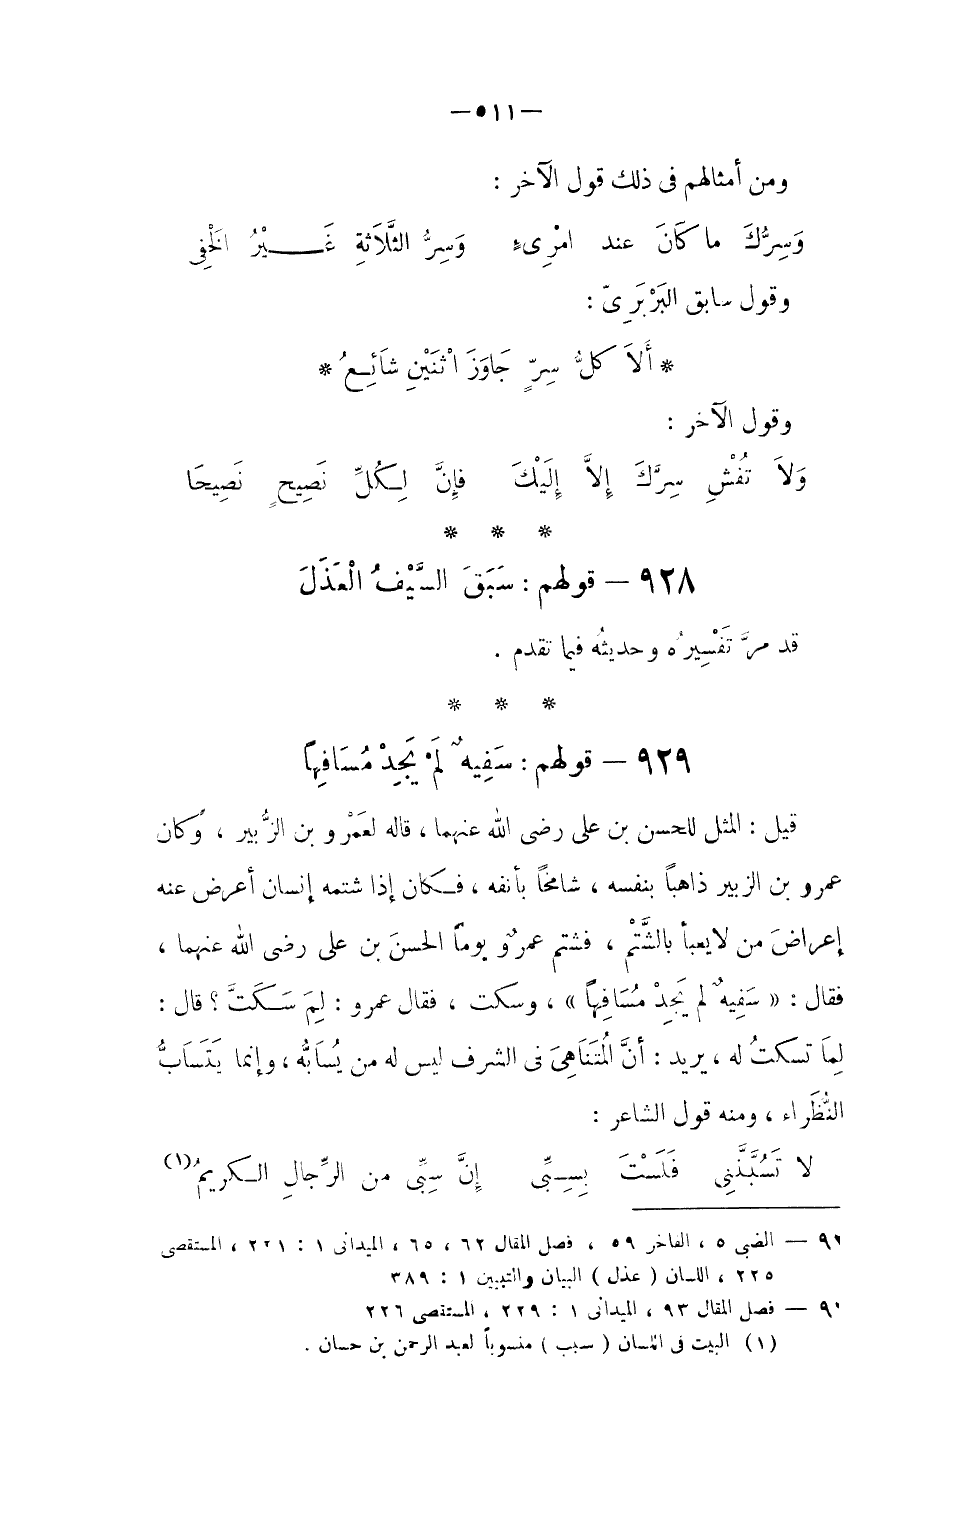 —٥١١—
ومن أمثالهم فى ذلك قول الآخر :
وَسِرُّكَ ما كَانَ عند امْرِىءٍ وَسِرُّ الثَّلَاثةِ غَـــيْرُ الْخِفِى
وقول سابق البَرْبَرِىّ :
* أَلاَ كلُّ سِرٍّ جَاوَزَ اثْنَيْنِ شَائِعُ *
وقول الآخر :
وَلاَ تُفْشِ سِرَّكَ إِلاَّ إِلَيْكَ فإِنَّ لِكُلِّ نَصِيحٍ نَصِيحَا
* * *
٩٢٨ — قولهم : سَبَقَ السَّيْفُ الْعَذَلَ
قد مرَّ تَفْسِيرُه وحديثُه فيما تقدم .
* * *
٩٢٩ — قولهم : سَفِيهٌ لَمْ يَجِدْ مُسَافِهاً
قيل : المثل للحسن بن على رضى الله عنهما ، قاله لعَمْرو بن الزُّبير ، وكان
عمرو بن الزبير ذاهباً بنفسه ، شامخاً بأنفه ، فـكان إذا شتمه إنسان أعرض عنه
إعراضَ من لايعبأ بالشَّتْم ، فشتم عمرٌو يوماً الحسنَ بن على رضى الله عنهما ،
فقال : « سَفِيهٌ لم يَجِدْ مُسَافِهاً » ، وسكت ، فقال عمرو : لِمَ سَـكَتَّ ؟ قال :
لِمَا تسكتُ له ، يريد : أنَّ الْمُتَنَاهِىَ فى الشرف ليس له من يُسَابُّه ، وإنما يَتَسَابُّ
النُّظَراء ، ومنه قول الشاعر :
لا تَسُبَّنَّنِى فَلَسْتَ بِسِبِّى إِنَّ سِبِّى من الرِّجالِ الـكريمُ(١)
٩١ — الضبى ٥ ، الفاخر ٥٩ ، فصل المقال ٦٢ ، ٦٥ ، الميدانى ١ : ٢٢١ ، المستقصى
٢٢٥ ، اللسان ( عذل ) البيان والتبيين ١ : ٣٨٩
٩٠ — فصل المقال ٩٣ ، الميدانى ١ : ٢٢٩ ، المستقصى ٢٢٦
(١) البيت فى اللسان ( سبب ) منسوباً لعبد الرحمن بن حسان .